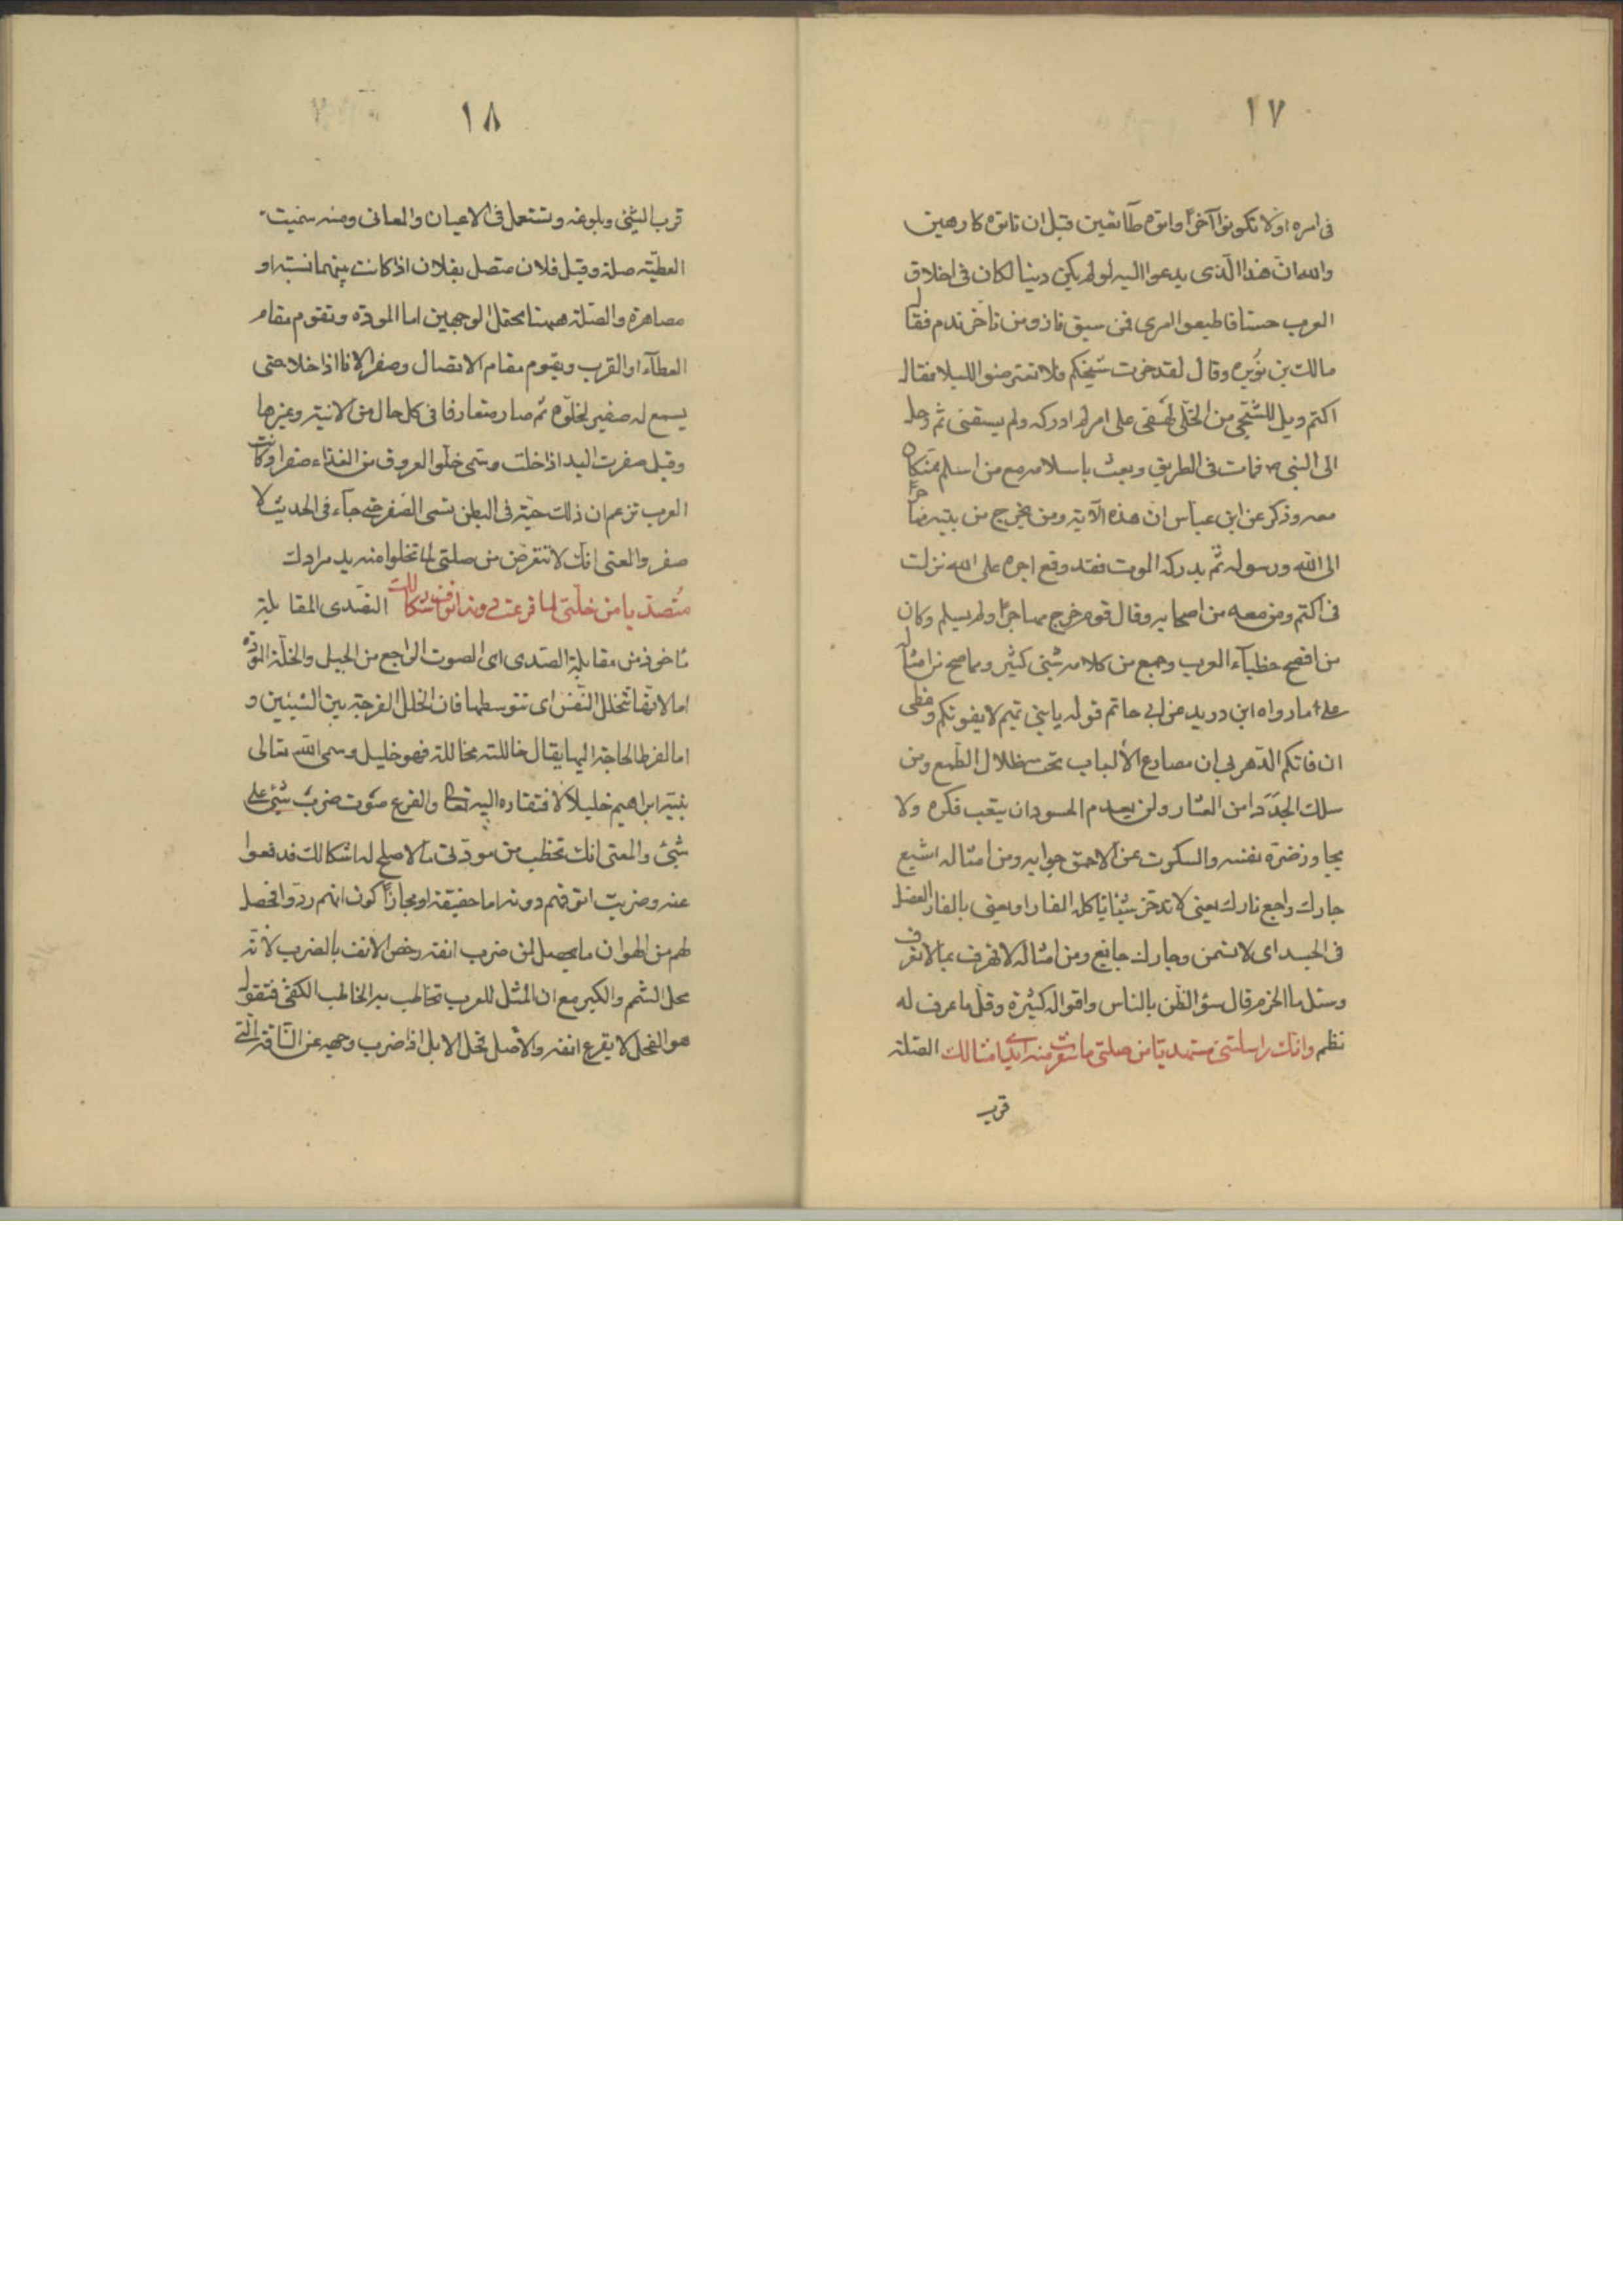 ١٧
فى امره اولا تكونوا آخرا واتوه طآئعين قبل ان تاتوه كارهين
والله ان هذا الذى يدعوا اليه لو لم يكن دينا لكان فى اخلاق
العرب حسنا فاطيعوا امرى فمن سبق فاز ومن تاخر ندم فقال
مالك بن نويره وقال لقد خرف شيخكم فلا تتعرضوا للبلا فقال
اكتم ويل للشجى من الخلى لهفى على امر لم ادركه ولم يسبقنى ثم رحل
الى النبى ص فمات فى الطريق وبعث باسلامه مع من اسلم ممن كان
معه وذكر عن ابن عباس ان هذه الآية ومن يخرج من بيته مهاجرا
الى الله ورسوله ثم يدركه الموت فقد وقع اجره على الله نزلت
فى اكتم ومن معه من اصحابه وقال قوم خرج مهاجرا ولم يسلم وكان
من افصح خطبآء العرب وجمع من كلامه شئ كثير ومما صح من امثاله
على ما رواه ابن دريد عن ابى حاتم قوله يا بنى تميم لا يفوتكم وعظى
ان فاتكم الدهر بى ان مصارع الألباب تحت ظلال الطمع ومن
سلك الجدد امن العثار ولن يعدم الحسود ان يتعب فكره ولا
يجاوز ضره نفسه والسكوت عن الاحمق جوابه ومن امثاله اشبع
جارك واجع فارك يعنى لا تدخر شيئا ياكله الفار او يعنى بالفار العضل
فى الجسد اى لا تسمن وجارك جائع ومن امثاله لا تهرف بما لا تعرف
وسئل ما الحزم قال سؤ الظن بالناس واقواله كثيرة وقل ما عرف له
نظم وانك راسلتنى مستهديا من صلتى ما صفرت منه ايدى امثالك الصلة
قرب
١٨
قرب الشئ وبلوغه وتستعمل فى الاعيان والمعانى ومنه سميت
العطية صلة وقيل فلان متصل بفلان اذا كانت بينهما نسبة او
مصاهرة والصلة ههنا تحتمل الوجهين اما المودة وتقوم مقام
العطآء او القرب ويقوم مقام الاتصال وصفر الانا اذا خلا حتى
يسمع له صفير لخلوه ثم صار متعارفا فى كل حال من الانية وغيرها
وقيل صفرت اليد اذا خلت وسمى خلو العروق من الغذاء صفرا وكانت
العرب تزعم ان ذلك حية فى البطن تسمى الصفر حتى جآء فى الحديث لا
صفر والمعنى انك لا تتعرض من صلتى لما تخلوا منه يد مرادك
متصديا من خلتى لما قرعت دونه انوف اشكالك التصدى المقابلة
ماخوذ من مقابلة الصدى اى الصوت الراجع من الجبل والخلة المودة
اما لانها تتخلل النفس اى تتوسطها فان الخلل الفرجة بين الشيئين و
اما لفرط الحاجة اليها يقال خاللته مخاللة فهو خليل وسمى الله تعالى
نبيه ابراهيم خليلا لافتقاره اليه تعالى والقرع صوت ضرب شئ على
شئ والمعنى انك تخطب من مودتى ما لا صلح له اشكالك فدفعوا
عنه وضربت انوفهم دونه اما حقيقة او مجازا كون انهم ردوا فحصل
لهم من الهوان ما يحصل لمن ضرب انفه وخص الانف بالضرب لانه
محل الشم والكبر مع ان المثل للعرب تخاطب به الخاطب الكفئ فتقول
هو الفحل لا يقرع انفه والاصل فحل الابل اذا ضرب وجهه عن الناقة التى